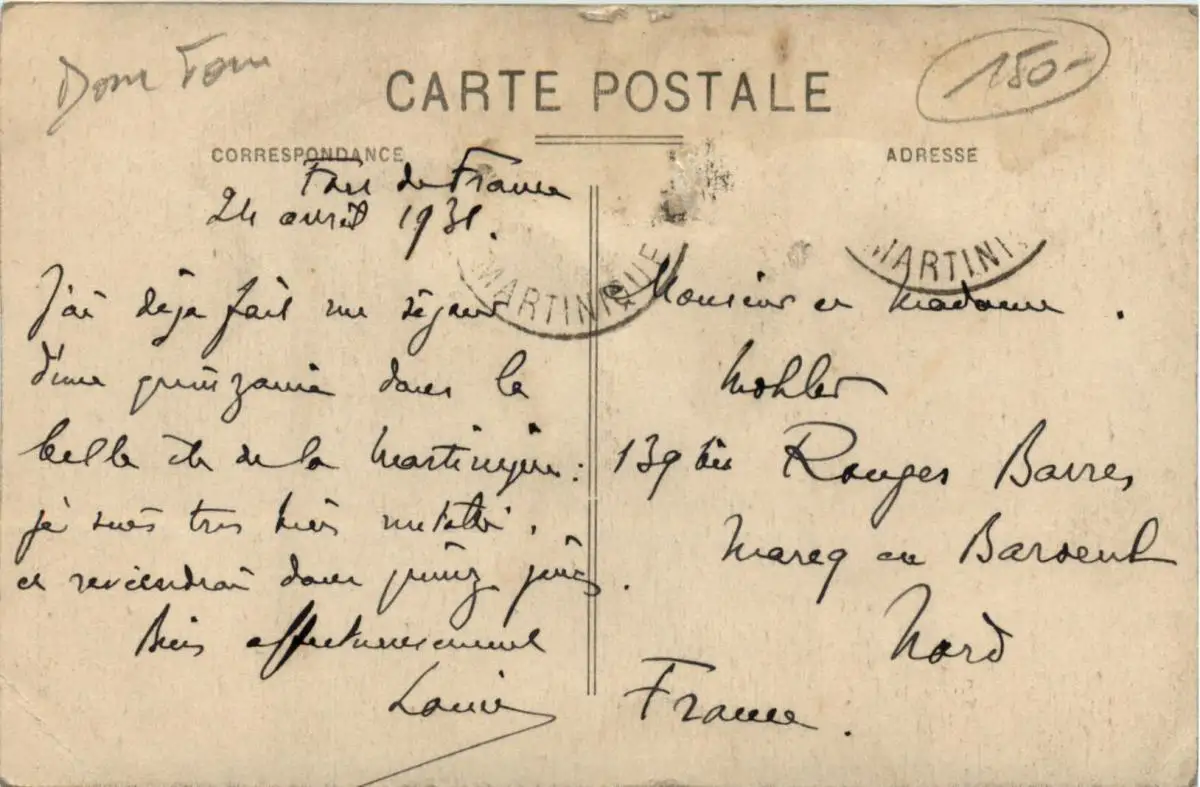 Dom Tom
150-
CARTE POSTALE
CORRESPONDANCE
ADRESSE
Fort de France
24 avril 1931.
MARTINIQUE
MARTINI
J'ai déja fait un séjour
d'une quinzaine dans la
belle île de la Martinique :
je suis très bien
et reviendrai dans quinz jours.
Bien affectueusement
Louis
Monsieur et Madame.
Mohler
139 bis Rouges Barres
Marcq en Baroeul
Nord
France.